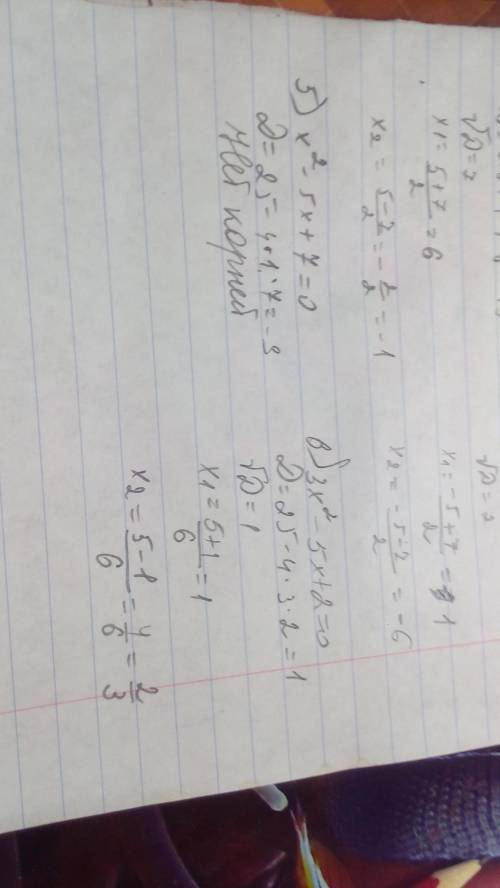 √D = 7
x1 = 5+7/2 = 6
x2 = 5-7/2 = -2/2 = -1
5) x² - 5x + 7 = 0
D = 25 - 4·1·7 = -3
Нет корней
x1 = -5+7/2 = 1
x2 = -5-7/2 = -6
6) 3x² - 5x + 2 = 0
D = 25 - 4·3·2 = 1
√D = 1
x1 = 5+1/6 = 1
x2 = 5-1/6 = 4/6 = 2/3